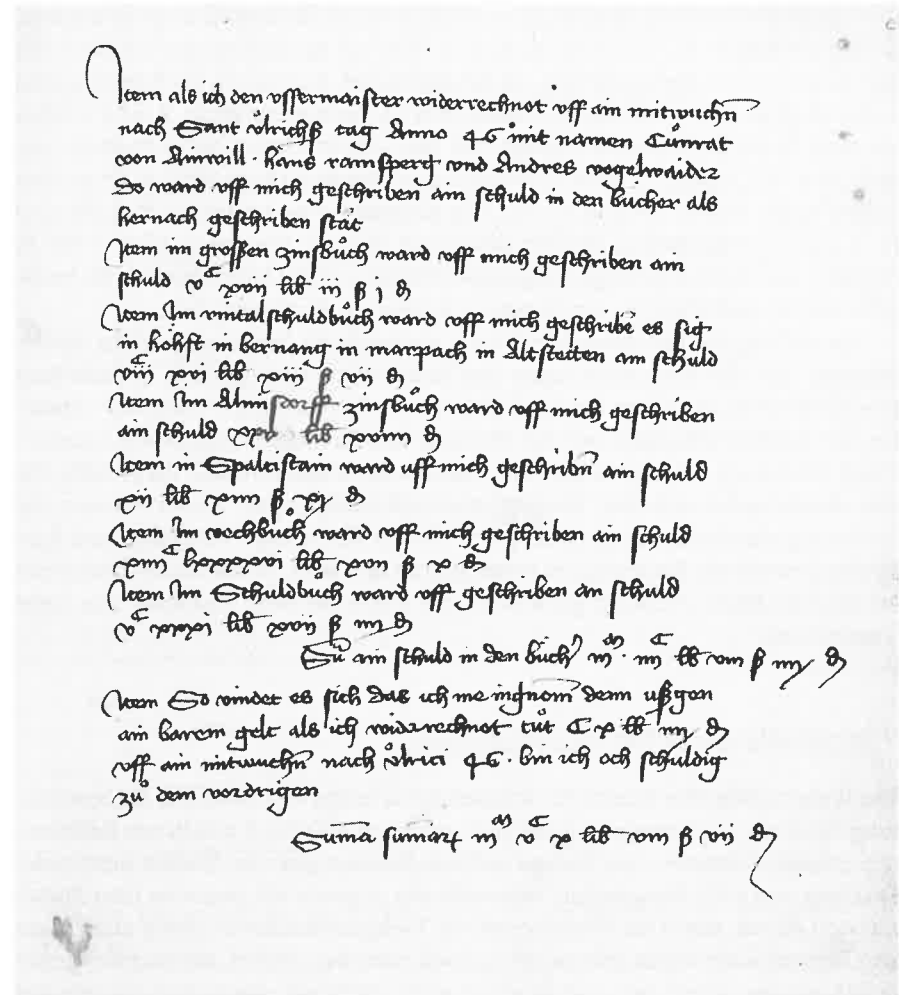 Item als ich den ussermaister widerrechnot uff ain mitwuchn̄
nach Sant Ůlrichs tag Anno 46 mit namen Cůnrat
von Ainwill · hans ramsperg vnd Andres vogelwaider
Do ward vff mich geschriben ain schuld in den bücher als
hernach geschriben stät
Item im großen zinsbůch ward vff mich geschriben ain
schuld vᶜ xvii lib iii ß j ₰
Item Im rintalschuldbůch ward vff mich geschribē es sig
in höhst in bernang in marpach in Altstetten ain schuld
viiiᶜ xvi lib xiii ß vii ₰
Item Im zinsbůch ward vff mich geschriben
ain schuld lib xviiii ₰
Item in Spaltistain ward uff mich geschribn̄ ain schuld
xii lib xiiii ß xj ₰
Item Im vechbůch ward vff mich geschriben ain schuld
xiiiiᶜ lxxxxvi lib xvii ß x ₰
Item Im Schuldbůch ward vff geschriben an schuld
vᶜ xxxi lib xvii ß iiij ₰
Sū ain schuld in den büch iiiᵐ · iiiiᶜ lib viii ß iiij ₰
Item So vindet es sich das ich me ingnom̄ denn ußgen
ain barem gelt als ich widerrechnot tůt C x lib iiij ₰
vff ain mitwuchn̄ nach ůlrici 46 · bin ich och schuldig
zů dem vordrigen
Sum̄a sum̄arꝝ iiiᵐ vᶜ x lib viii ß vii ₰